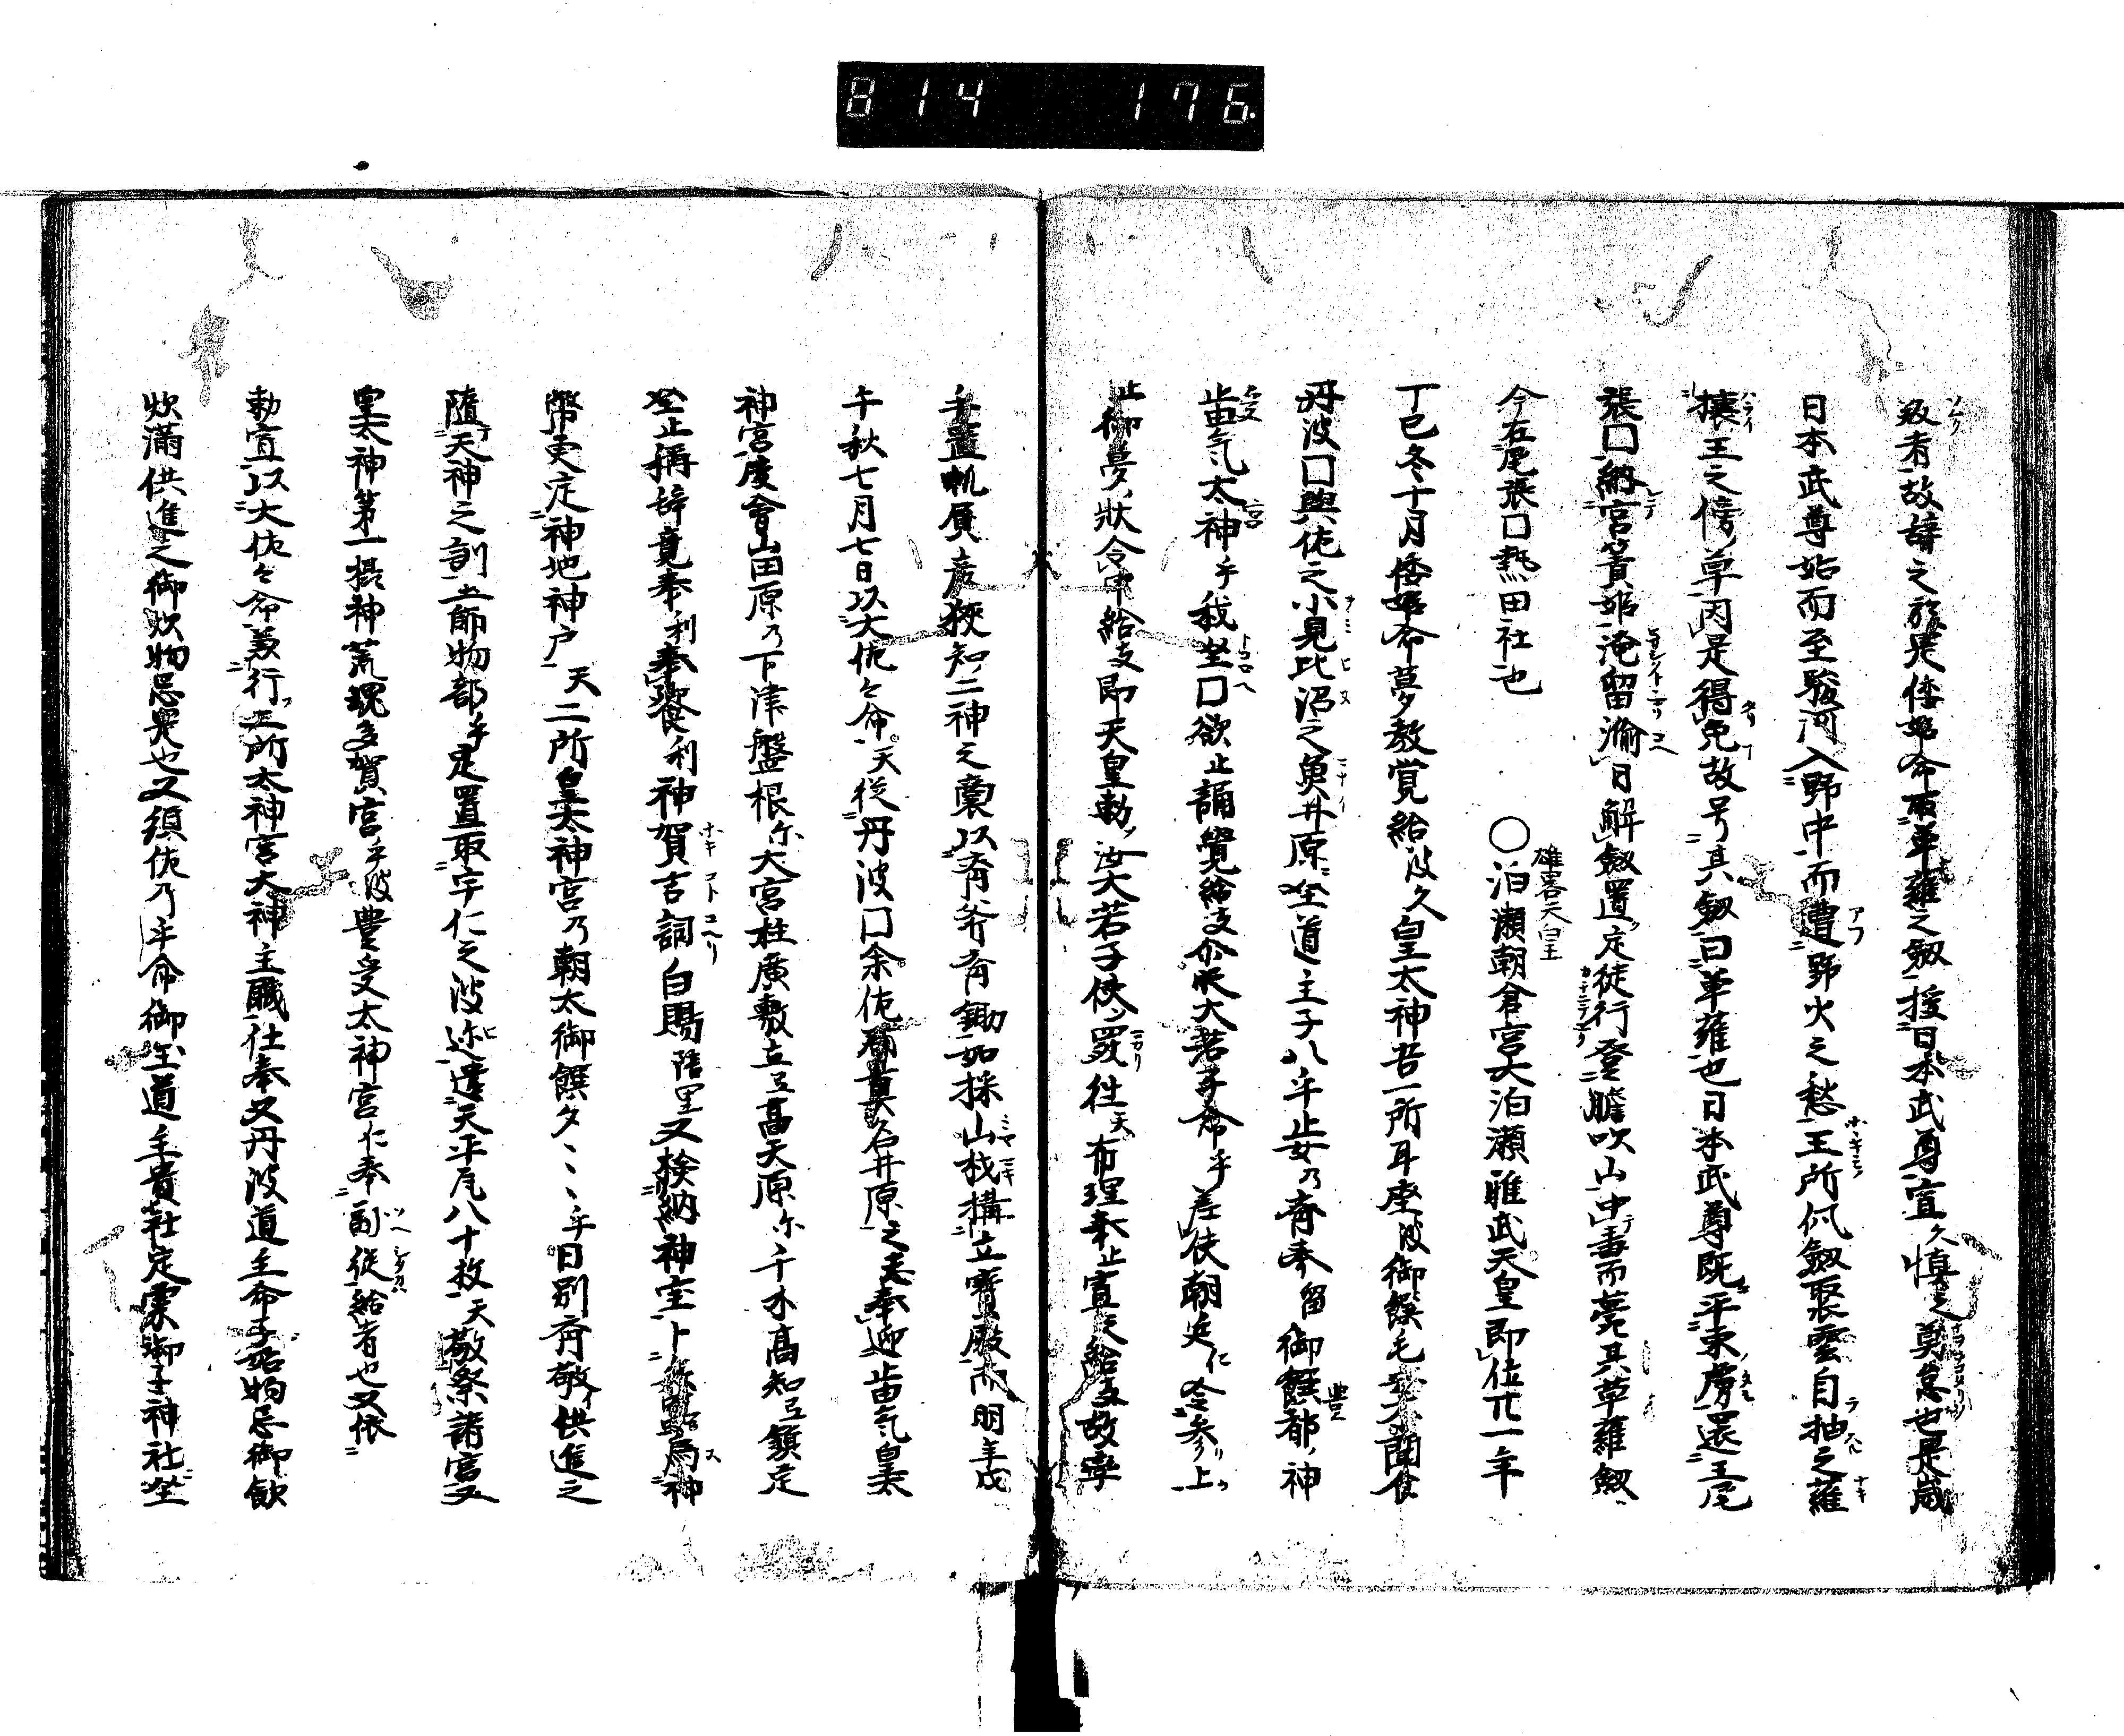 814 176.
叛者故辞之於是倭姫命取草薙之劔授日本武尊宣久慎之莫怠也是歳
日本武尊始而至駿河入野中而遭野火之愁王所佩劔藂雲自抽之薙
攘王之傍草因是得免故号其劔曰草薙也日本武尊既平東虜還至尾
張口納宮簀姫淹留踰月解劔置定徒行登膽吹山中毒而薨其草薙劔
今在尾張口熱田社也 ○泊瀬朝倉宮大泊瀬雅武天皇即位廿一年
雄畧天皇
丁巳冬十月倭姫命夢教覚給波久皇太神吾一所耳座波御饌毛安不聞食
丹波口與佐之小見比沼之魚井原坐道主子八乎止女乃斉奉留御饌都神
止由気太神乎我坐口欲止誨覺給支尓時大若子命乎差使朝廷仁令参上
止御夢状令申給支即天皇勅汝大若子使罷往天布理奉止宣支給支故率
手置帆屓彦狭知二神之裔以斉斧斉鋤始採山材構立寶殿而明年戊
午秋七月七日以大佐々命天従丹波口余佐郡真名井原之志奉迎止由気皇太
神宮度會山田原乃下津盤根尓大宮柱廣敷立弖高天原尓千木高知弖鎮定
坐止稱辞竟奉利奉饗利神賀吉詞白賜 又検納神宝卜 為神
幣更定神地神戸天二所皇太神宮乃朝太御饌夕、、、乎日別斉敬供進之
随天神之訓土師物部乎定置取宇仁之波迩造天平瓮八十枚天敬祭諸宮又
皇太神第一攝神荒魂多賀宮乎波豊受太神宮仁奉副従給者也又依
勅宣以大佐々命兼行二所太神宮大神主職仕奉又丹波道主命子始物忌御飯
炊満供進之御炊物忌是也又須佐乃乎命御玉道主貴社定粟御子神社坐